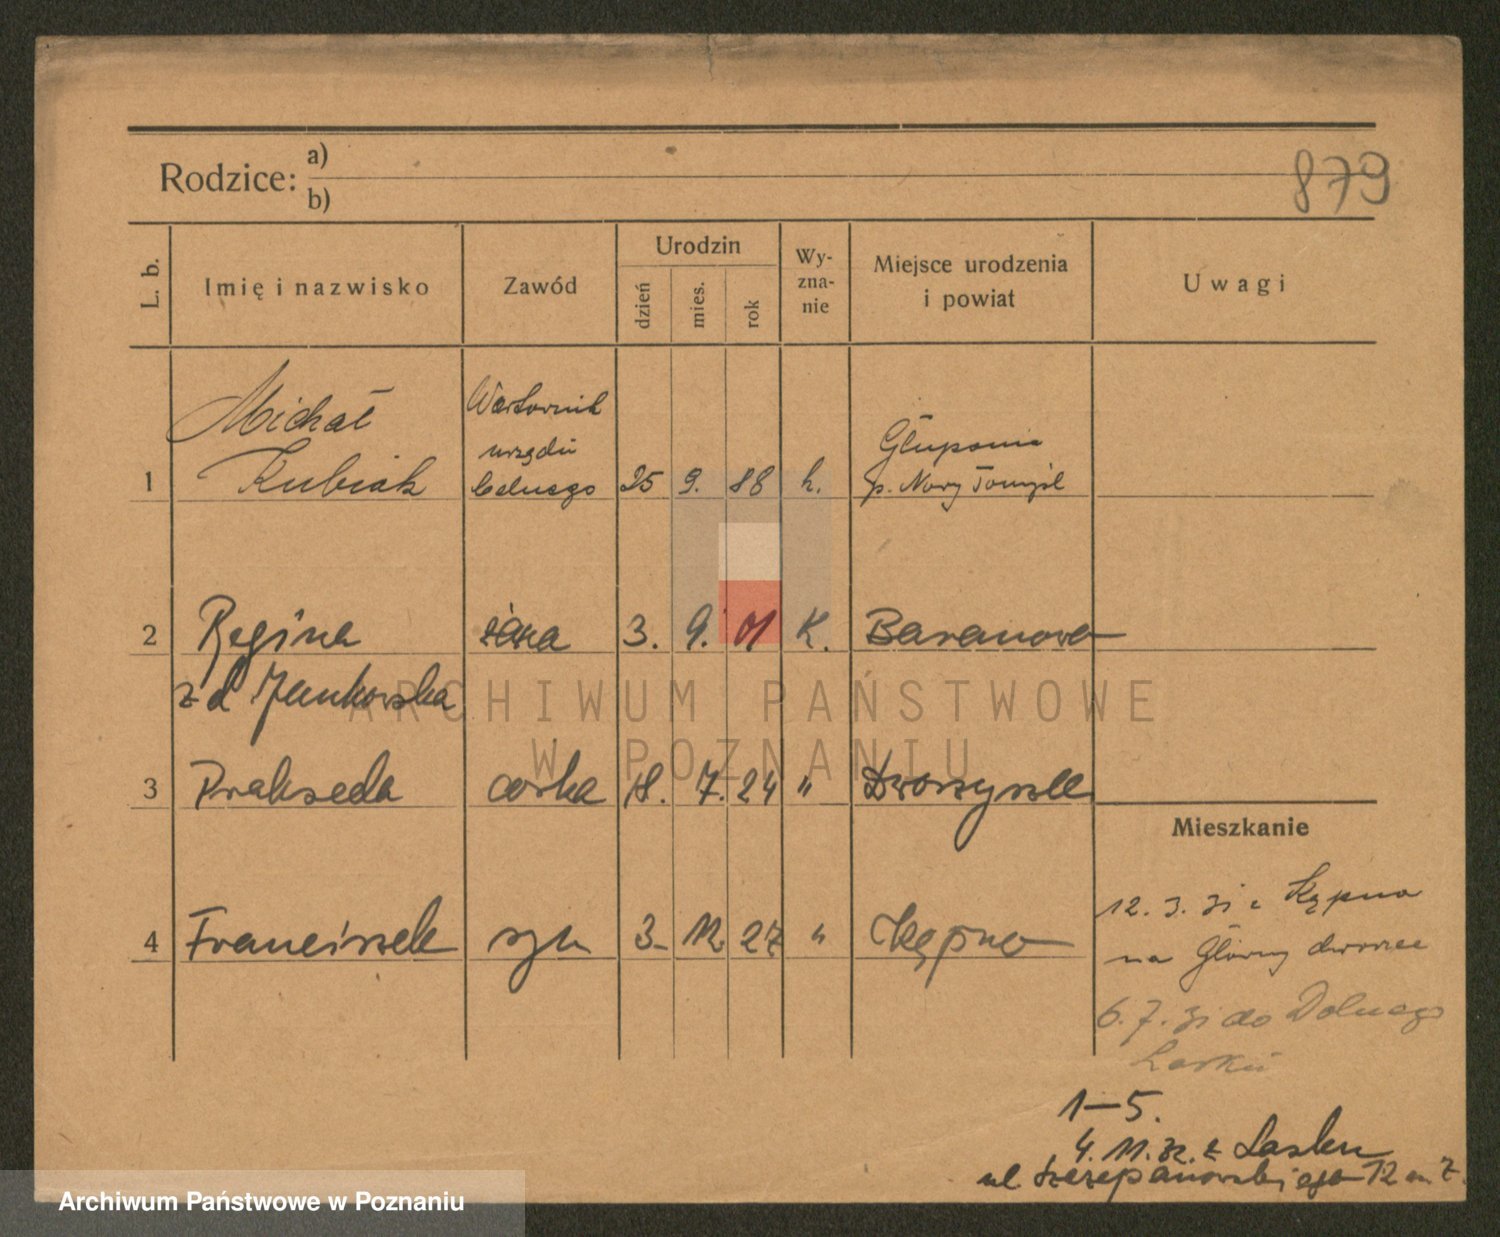 879
Rodzice: a)
b)
L. b.
Imię i nazwisko
Zawód
Urodzin
dzień
mies.
rok
Wy-
zna-
nie
Miejsce urodzenia
i powiat
Uwagi
Michał
Kubiak
urzędu
celnego
1
25
9.
88
k.
Głuponie
p. Nowy Tomyśl
2
Regina
żona
3.
9.
01
K.
Baranowo
z d Jankowska
3
Prakseda
córka
18.
7.
24
"
Mieszkanie
4
Franciszek
syn
3
12
27
"
Kępno
12. 3. 31 z Kępna
na Główny dworzec
6. 7. 31 do Dolnego
Lasku
1–5.
4. 11. 32. z Lasku
ul. Szczepanowskiego 12 m 7.
ARCHIWUM PAŃSTWOWE
W POZNANIU
Archiwum Państwowe w Poznaniu